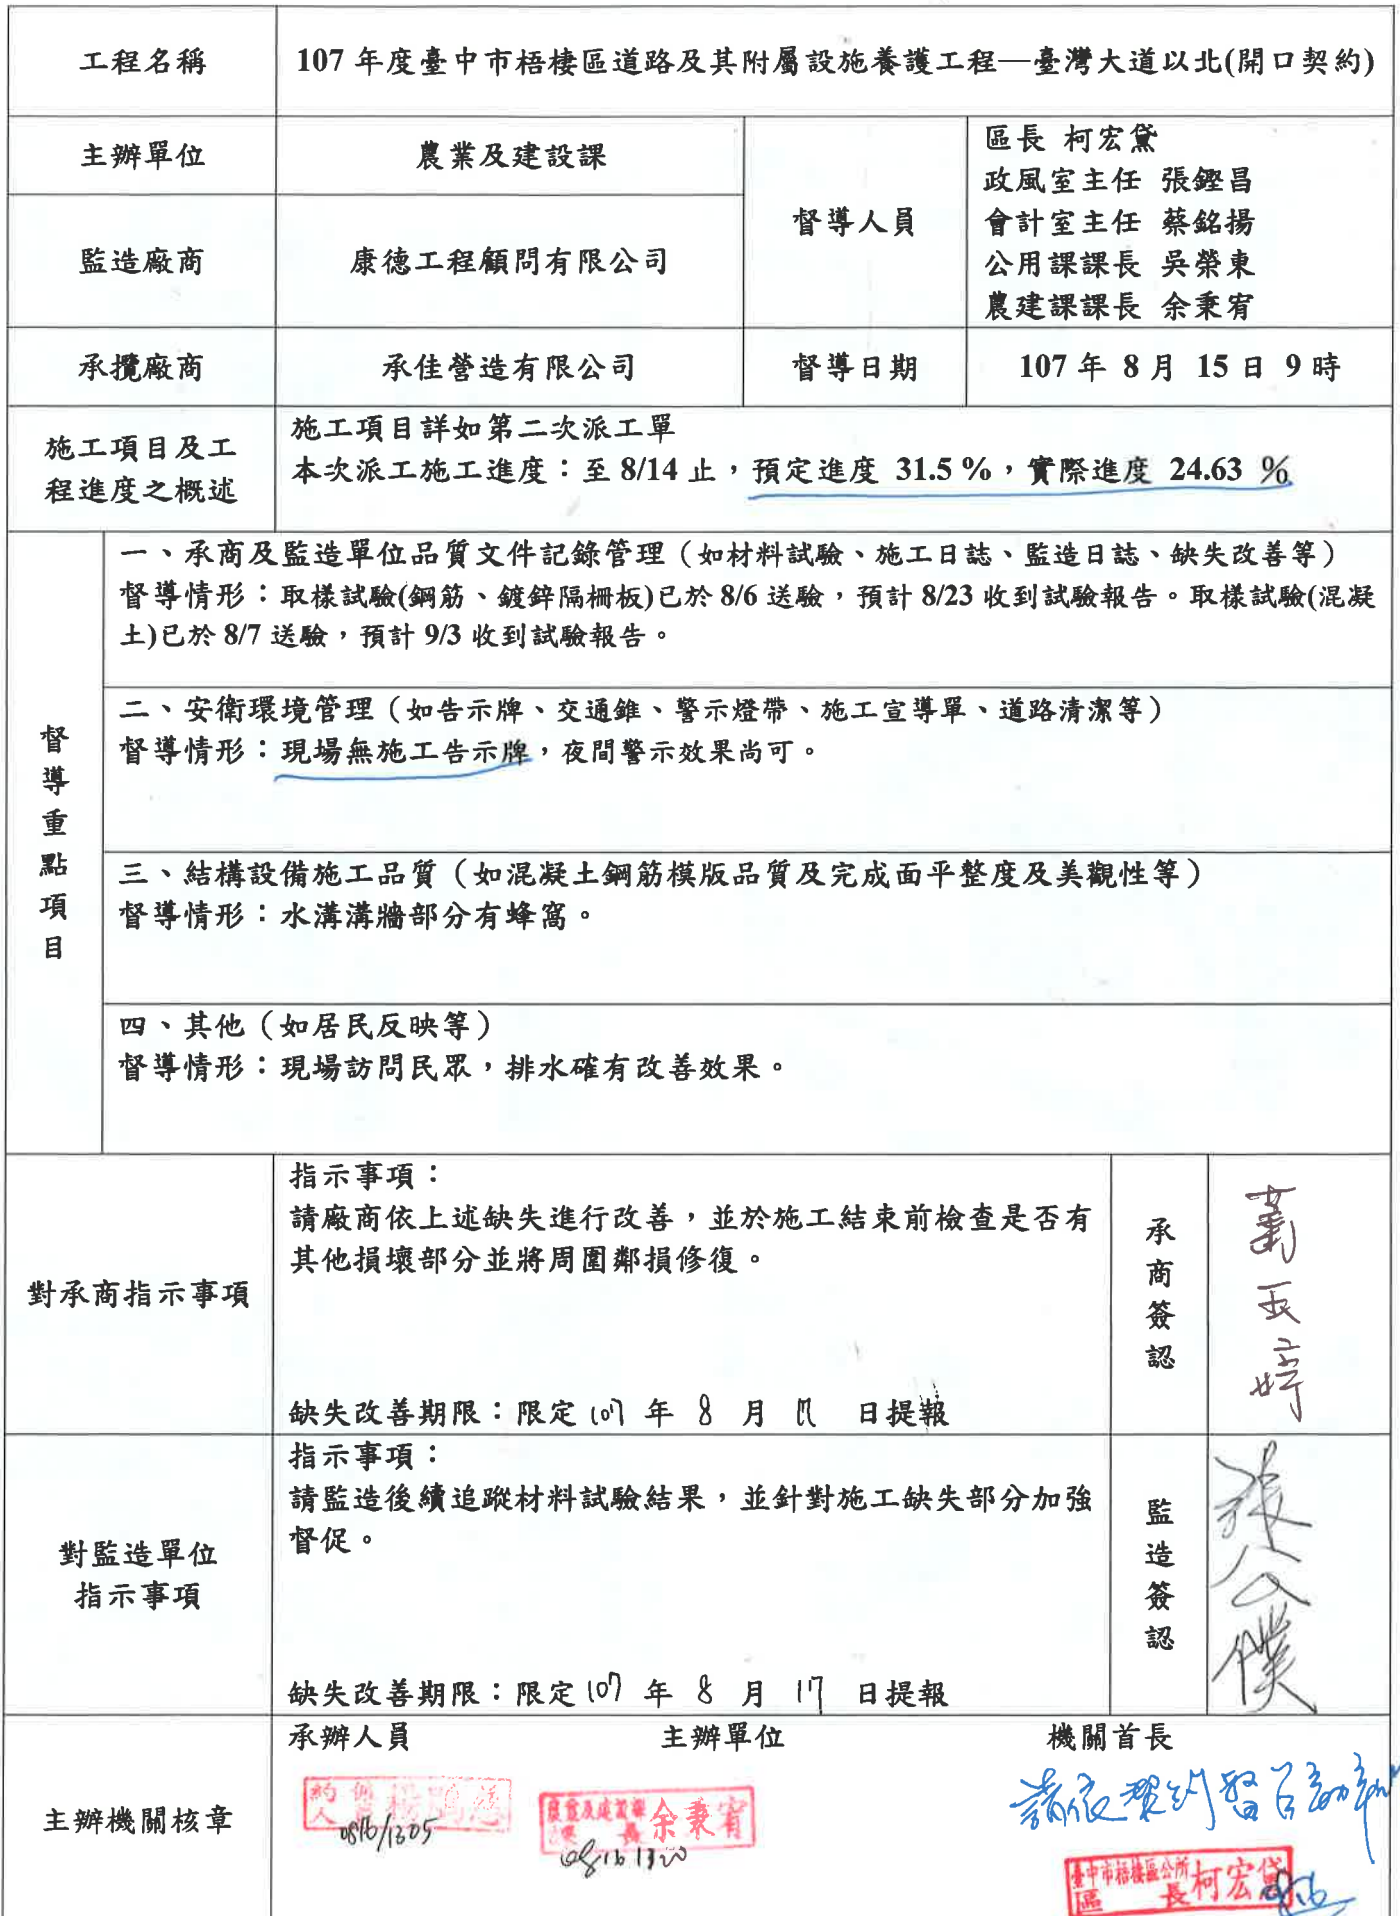 工程名稱
107 年度臺中市梧棲區道路及其附屬設施養護工程—臺灣大道以北(開口契約)
主辦單位
農業及建設課
監造廠商
康德工程顧問有限公司
督導人員
區長 柯宏黛
政風室主任 張鏗昌
會計室主任 蔡銘揚
公用課課長 吳榮東
農建課課長 余秉宥
承攬廠商
承佳營造有限公司
督導日期
107 年 8 月 15 日 9 時
施工項目及工
程進度之概述
施工項目詳如第二次派工單
本次派工施工進度：至 8/14 止，預定進度 31.5 %，實際進度 24.63 %
督導重點項目
一、承商及監造單位品質文件記錄管理（如材料試驗、施工日誌、監造日誌、缺失改善等）
督導情形：取樣試驗(鋼筋、鍍鋅隔柵板)已於 8/6 送驗，預計 8/23 收到試驗報告。取樣試驗(混凝
土)已於 8/7 送驗，預計 9/3 收到試驗報告。
二、安衛環境管理（如告示牌、交通錐、警示燈帶、施工宣導單、道路清潔等）
督導情形：現場無施工告示牌，夜間警示效果尚可。
三、結構設備施工品質（如混凝土鋼筋模版品質及完成面平整度及美觀性等）
督導情形：水溝溝牆部分有蜂窩。
四、其他（如居民反映等）
督導情形：現場訪問民眾，排水確有改善效果。
對承商指示事項
指示事項：
請廠商依上述缺失進行改善，並於施工結束前檢查是否有
其他損壞部分並將周圍鄰損修復。
缺失改善期限：限定 107 年 8 月 17 日提報
承商簽認
對監造單位
指示事項
指示事項：
請監造後續追蹤材料試驗結果，並針對施工缺失部分加強
督促。
缺失改善期限：限定 107 年 8 月 17 日提報
監造簽認
主辦機關核章
承辦人員
主辦單位
機關首長
0816/1305
農業及建設課
課長 余秉宥
0816 1320
臺中市梧棲區公所
區長 柯宏黛